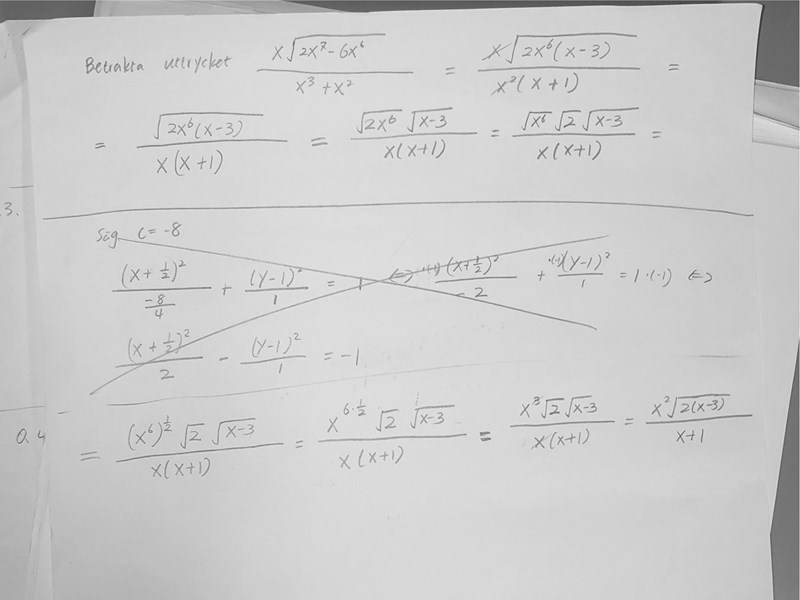 Betrakta uttrycket x√(2x⁷-6x⁶) / (x³+x²) = x√(2x⁶(x-3)) / (x²(x+1)) =
= √(2x⁶(x-3)) / (x(x+1)) = √(2x⁶) √(x-3) / (x(x+1)) = √(x⁶) √2 √(x-3) / (x(x+1)) =
3.
Säg C = -8
(x+½)² / (-8/4) + (y-1)² / 1 = 1 ⇔ ·(-1) (x+½)² / -2 + ·(-1) (y-1)² / 1 = 1·(-1) ⇔
(x+½)² / 2 - (y-1)² / 1 = -1
0.4
= (x⁶)^½ √2 √(x-3) / (x(x+1)) = x^(6·½) √2 √(x-3) / (x(x+1)) = x³√2 √(x-3) / (x(x+1)) = x²√(2(x-3)) / (x+1)